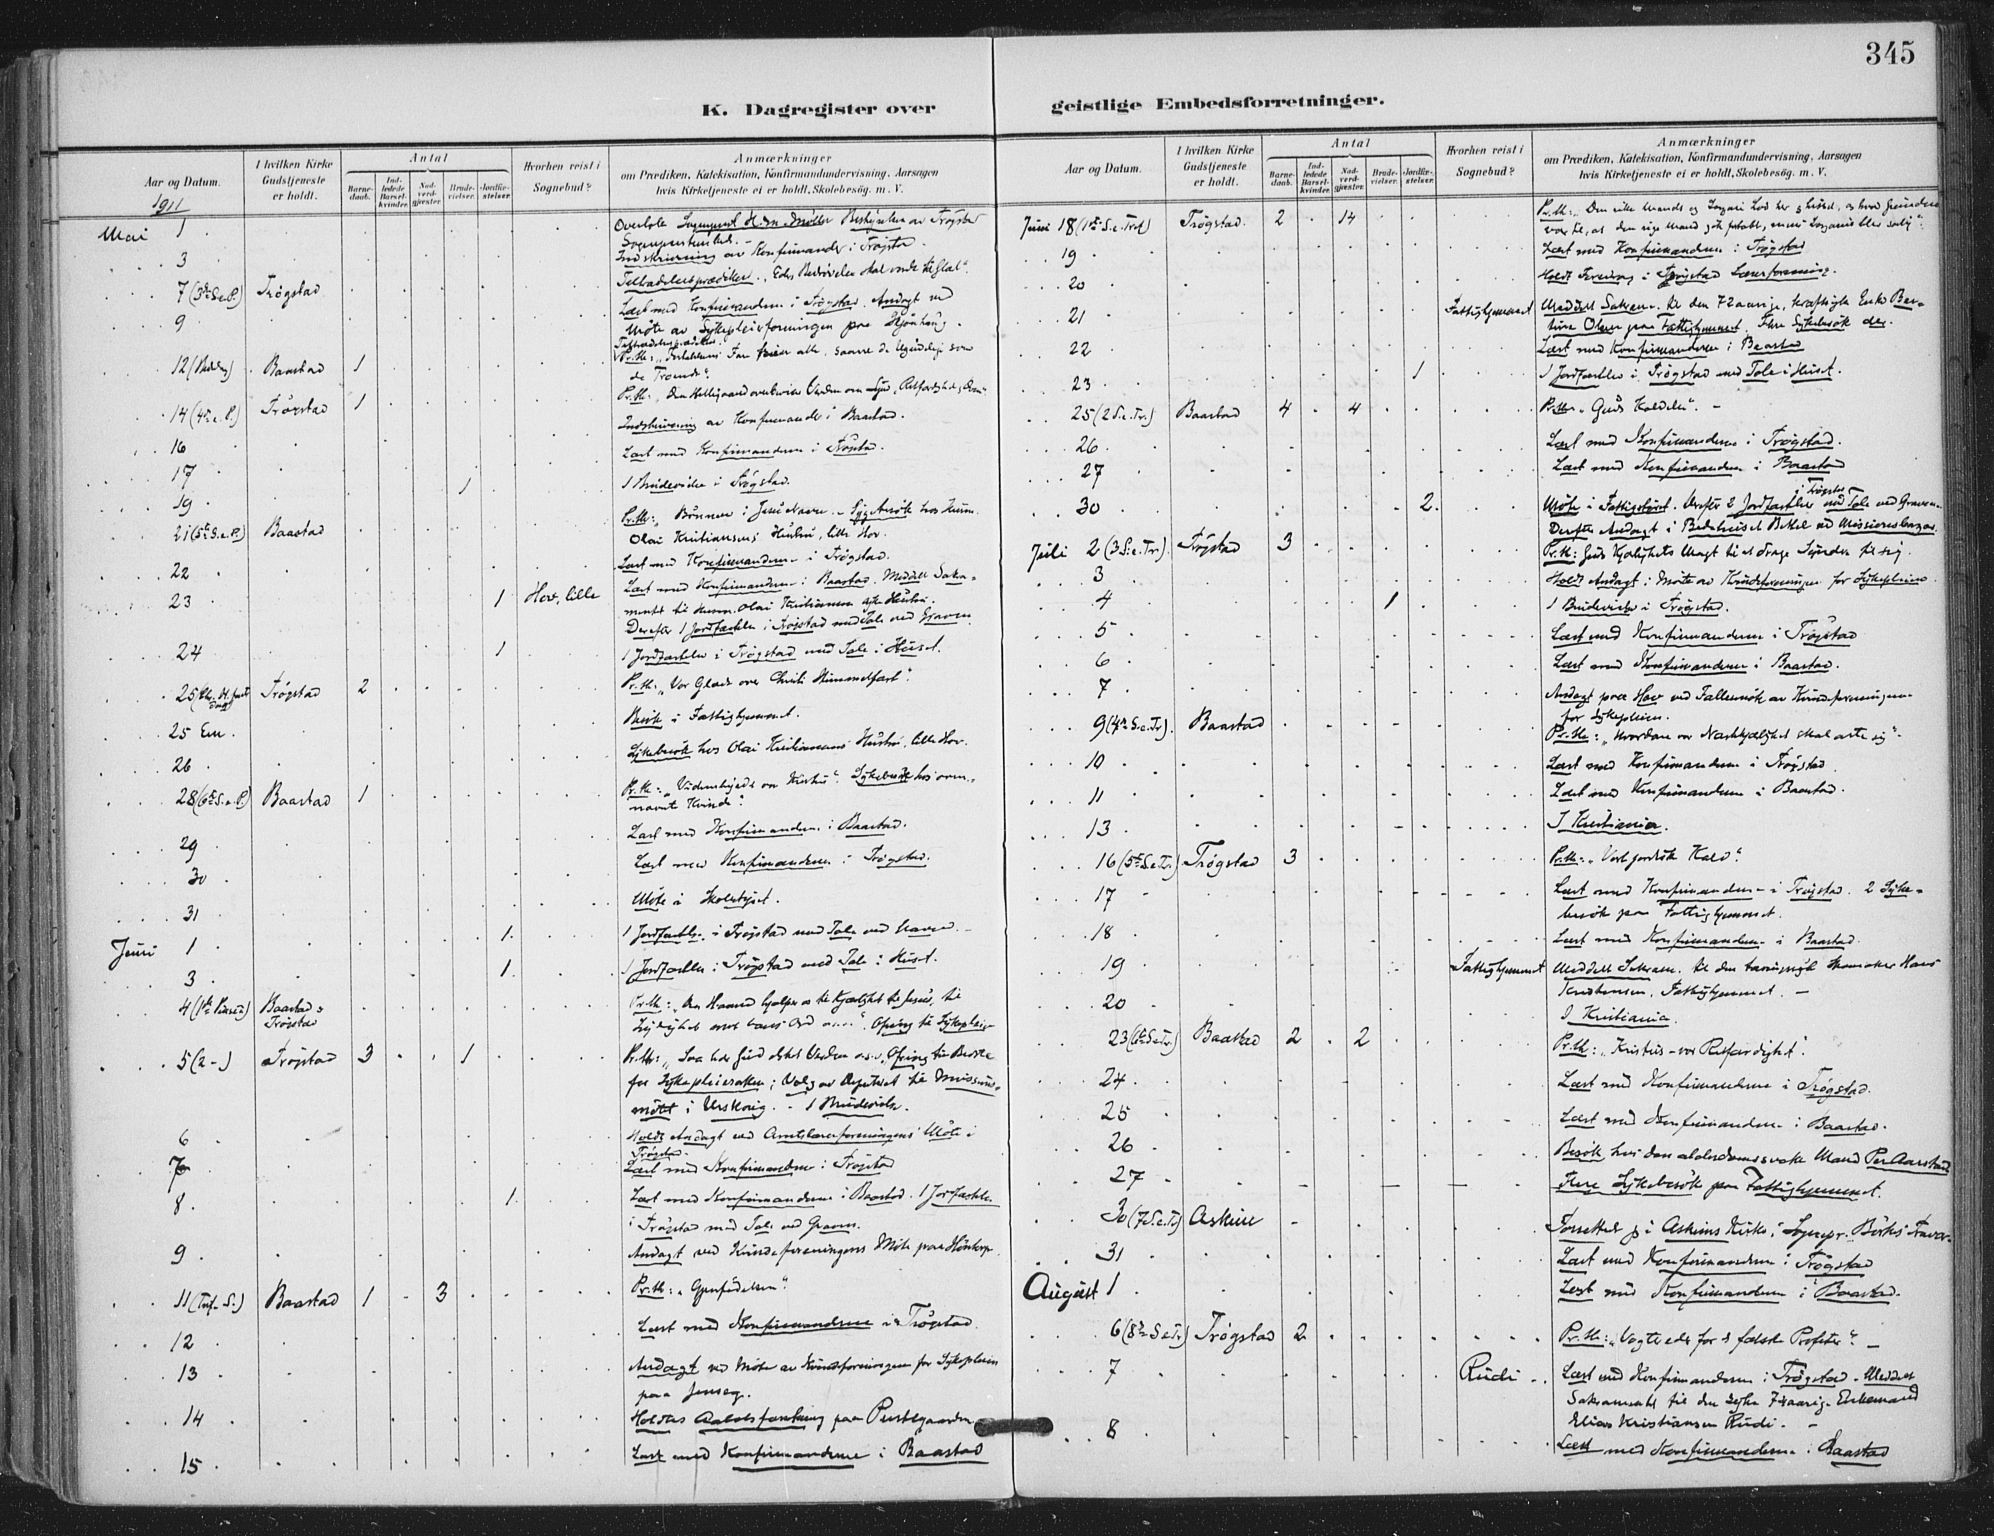 345
K. Dagregister over
geistlige Embedsforretninger.
Aar og Datum.
I hvilken Kirke Gudstjeneste er holdt.
Antal
Barnedaab.
Indledede Barselkvinder.
Nadverdgjæster.
Brudevielser.
Jordfæstelser.
Hvorhen reist i Sognebud?
Anmærkninger
om Prædiken, Katekisation, Konfirmandundervisning, Aarsagen
hvis Kirketjeneste ei er holdt, Skolebesøg. m. V.
1911
Mai 1
3 Indskrivning av Konfirmander i Trøgstad.
7 (3die S.e.P.) Trøgstad Tiltrædelsesprædiken.
9 Læst med Konfirmanderne i Trøgstad. Andagt ved
Møte av Sykepleieforeningen paa
12 (Bededag) Baastad 1
de Troende".
14 (4de e. P.) Trøgstad 1 Pr. Th.:
16 Indskrivning av Konfirmander i Baastad.
17 Læst med Konfirmanderne i Trøgstad.
19 1 1 Brudevielse i Trøgstad.
21 (5te S.e.P.) Baastad Pr. Th.: "Bønnen i Jesu Navn.
Olai Kristiansens Hustru, lille Hov.
22 Læst med Konfirmanderne i Trøgstad.
23 1 Hov, lille Læst med Konfirmanderne i Baastad. Meddelt Sakra-
mentet til Olai Kristiansens Hustru.
Derefter 1 Jordfæstelse i Trøgstad med Tale ved Graven.
24 1 1 Jordfæstelse i Trøgstad med Tale i Huset.
25 Trøgstad 2 Pr. Th.: "Vor Glæde over Christi Himmelfart".
25 Em. Besøk i Fattighjemmet.
26 Sykebesøk hos Olai Kristiansens Hustru, lille Hov.
28 (6te S.e.P.) Baastad 1 Pr. Th.: "Vidnesbyrdet om Kristus". Sykebesøk hos oven-
nævnt Kvinde.
29 Læst med Konfirmanderne i Baastad.
30 Læst med Konfirmanderne i Trøgstad.
31 Møte i Skolestyret.
Juni 1 1 1 Jordfæstelse i Trøgstad med Tale ved Graven.
3 1 1 Jordfæstelse i Trøgstad med Tale i Huset.
4 (1ste Pinsed.) Baastad &
Trøgstad
5 (2 -) Trøgstad 3 1 Pr. Th.: "Saa har Gud elsket Verden o.s.v. Ofring til Bedste
for Sykepleiesaken; Valg av Deputeret til Missions-
møtet i Urskoug. - 1 Brudevielse.
6 Holdt Andagt ved Amtslærerforeningens Møte i
Trøgstad.
7 Læst med Konfirmanderne i Trøgstad
8 1 Læst med Konfirmanderne i Baastad. 1 Jordfæstelse
i Trøgstad med Tale ved Graven.
9 Andagt ved Kvindeforeningens Møte paa
11 (Tref. S.) Baastad 1 3 Pr. Th.: "Gjenfødelsen".
12 Læst med Konfirmanderne i Trøgstad.
13 Andagt ved Møte av Kvindeforeningen for Sykepleien
paa Jenseg.
14 Holdtes paa Prestegaarden
15 Læst med Konfirmanderne i Baastad
Aar og Datum.
I hvilken Kirke Gudstjeneste er holdt.
Antal
Barnedaab.
Indledede Barselkvinder.
Nadverdgjæster.
Brudevielser.
Jordfæstelser.
Hvorhen reist i Sognebud?
Anmærkninger
om Prædiken, Katekisation, Konfirmandundervisning, Aarsagen
hvis Kirketjeneste ei er holdt, Skolebesøg. m. V.
Juni 18 (1ste S.e. Tref.) Trøgstad. 2 14
19 Læst med Konfirmanderne i Trøgstad
20 Holdt Foredrag i Trøgstad Lærerforening.
21 Fattighjemmet Meddelt Sakram. til den 72 aarige, kræftsyke Enke Ber-
tine Olsen paa Fattighjemmet. Flere Sykebesøk der.
22 Læst med Konfirmanderne i Baastad
23 1 1 Jordfæstelse i Trøgstad med Tale i Huset.
25 (2 S.e.Tr.) Baastad 4 4 Pr. Th.: "Guds Kaldelse". -
26 Læst med Konfirmanderne i Trøgstad.
27 Læst med Konfirmanderne i Baastad
30 2 Møte i Fattigstyret. Derefter 2 Jordfæstelser i Trøgstad med Tale ved Graven.
Derefter Andagt i Bedehuset Bethel ved Missionsbazar.
Juli 2 (3 S.e. Tr.) Trøgstad 3 Pr. Th: Guds Kjærligheds Magt til at drage Syndere til sig.
3 Holdt Andagt i Møte av Kvindeforeningen for Sykepleien.
4 1 1 Brudevielse i Trøgstad.
5 Læst med Konfirmanderne i Trøgstad
6 Læst med Konfirmanderne i Baastad.
7 Andagt paa Hov ved av Kvindeforeningen
for Sykepleien.
9 (4de S.e.Tr.) Baastad Pr. Th.: "Hvordan vor Næstkjærlighet skal arte sig".
10 Læst med Konfirmanderne i Trøgstad.
11 Læst med Konfirmanderne i Baastad.
13 I Kristiania.
16 (5te S.e.Tr.) Trøgstad 3 Pr. Th.: "Vort jordiske Kald".
17 Læst med Konfirmanderne i Trøgstad. 2 Syke-
besøk paa Fattighjemmet.
18 Læst med Konfirmanderne i Baastad.
19 Fattighjemmet Meddelt Sakram. til den Skomaker Hans
Kristensen, Fattighjemmet. -
20 I Kristiania.
23 (6te S.e.Tr.) Baastad 2 2 Pr. Th.: "Kristus - vor Retfærdighet".
24 Læst med Konfirmanderne i Trøgstad.
25 Læst med Konfirmanderne i Baastad.
26 Besøk hos den alderdomssvake Mand Per Aarstad
27 Flere Sykebesøk paa Fattighjemmet.
30 (7 S.e.Tr.) Askim Forrettet jeg i Askims Kirke i Sognepr. Fravær.
31 Læst med Konfirmanderne i Trøgstad
August 1 Læst med Konfirmanderne i Baastad.
6 (8de S.e.Tr.) Trøgstad 2 Pr. Th.: "Vogter eder for de falske Profeter". -
7 Rudi Læst med Konfirmanderne i Trøgstad. Meddelt
Sakramentet til den syke Enkemand
Elias Kristiansen Rudi. -
8 Læst med Konfirmanderne i Baastad